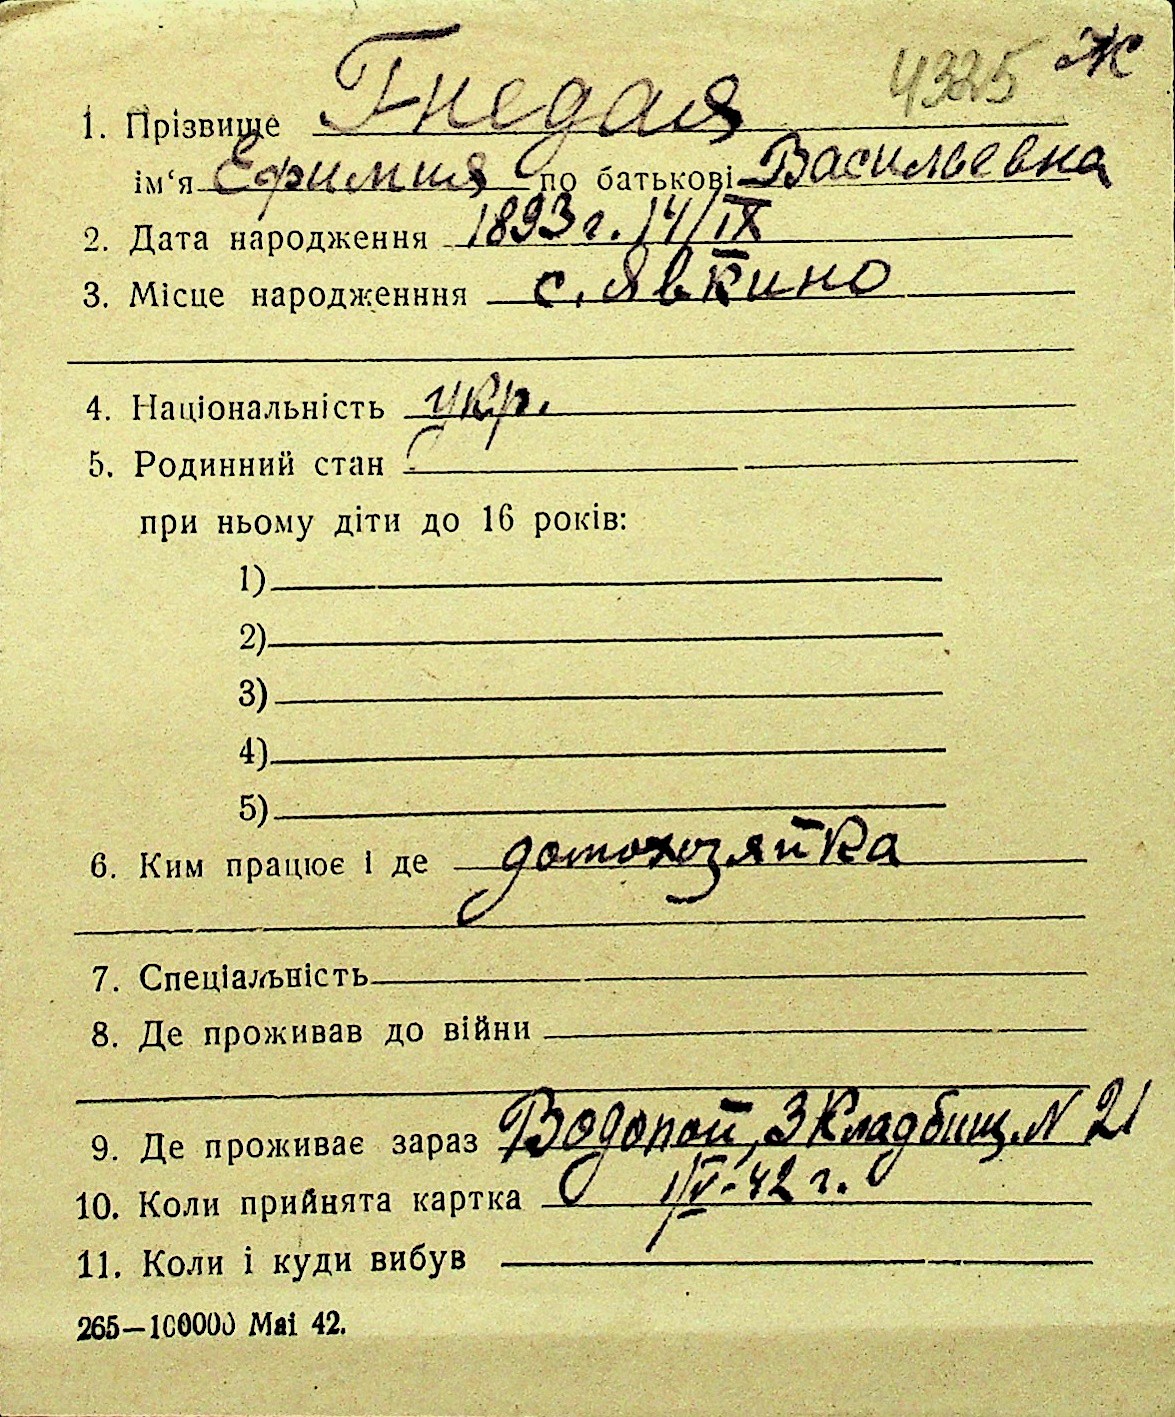 4325 Ж
1. Прізвище Гнедая
ім‘я Ефимия по батькові Васильевна
2. Дата народження 1893 г. 14/IX
3. Місце народженння с. Явкино
4. Національність укр.
5. Родинний стан
при ньому діти до 16 років:
1)
2)
3)
4)
5)
6. Ким працює і де домохозяйка
7. Спеціальність
8. Де проживав до війни
9. Де проживає зараз Водопой, 3 Кладбищ. N 21
10. Коли прийнята картка 1/V-42 г.
11. Коли і куди вибув
265—100000 Mai 42.